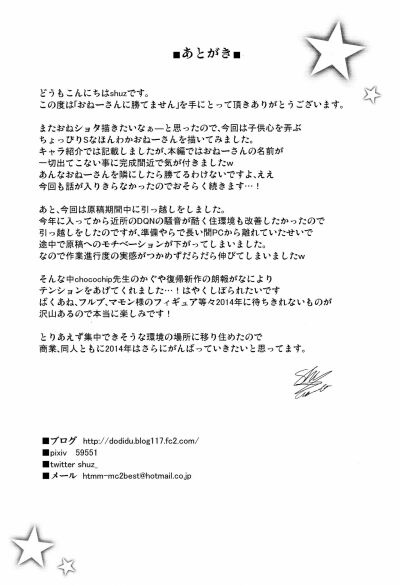 ■あとがき■
どうもこんにちはshuzです。
この度は「おねーさんに勝てません」を手にとって頂きありがとうございます。
またおねショタ描きたいなぁーと思ったので、今回は子供心を弄ぶ
ちょっぴりSなほんわかおねーさんを描いてみました。
キャラ紹介では記載しましたが、本編ではおねーさんの名前が
一切出てこない事に完成間近で気が付きましたw
あんなおねーさんを隣にしたら勝てるわけないですよ、ええ
今回も話が入りきらなかったのでおそらく続きます…!
あと、今回は原稿期間中に引っ越しをしました。
今年に入ってから近所のDQNの騒音が酷く住環境も改善したかったので
引っ越しをしたのですが、準備やらで長い間PCから離れていたせいで
途中で原稿へのモチベーションが下がってしまいました。
なので作業進行度の実感がつかめずだらだら伸びてしまいましたw
そんな中chocochip先生のかぐや復帰新作の朗報がなにより
テンションをあげてくれました…!はやくしぼられたいです
ぱくあね、フルプ、マモン様のフィギュア等々2014年に待ちきれないものが
沢山あるので本当に楽しみです!
とりあえず集中できそうな環境の場所に移り住めたので
商業、同人ともに2014年はさらにがんばっていきたいと思ってます。
■ブログ http://dodidu.blog117.fc2.com/
■pixiv 59551
■twitter shuz_
■メール htmm-mc2best@hotmail.co.jp